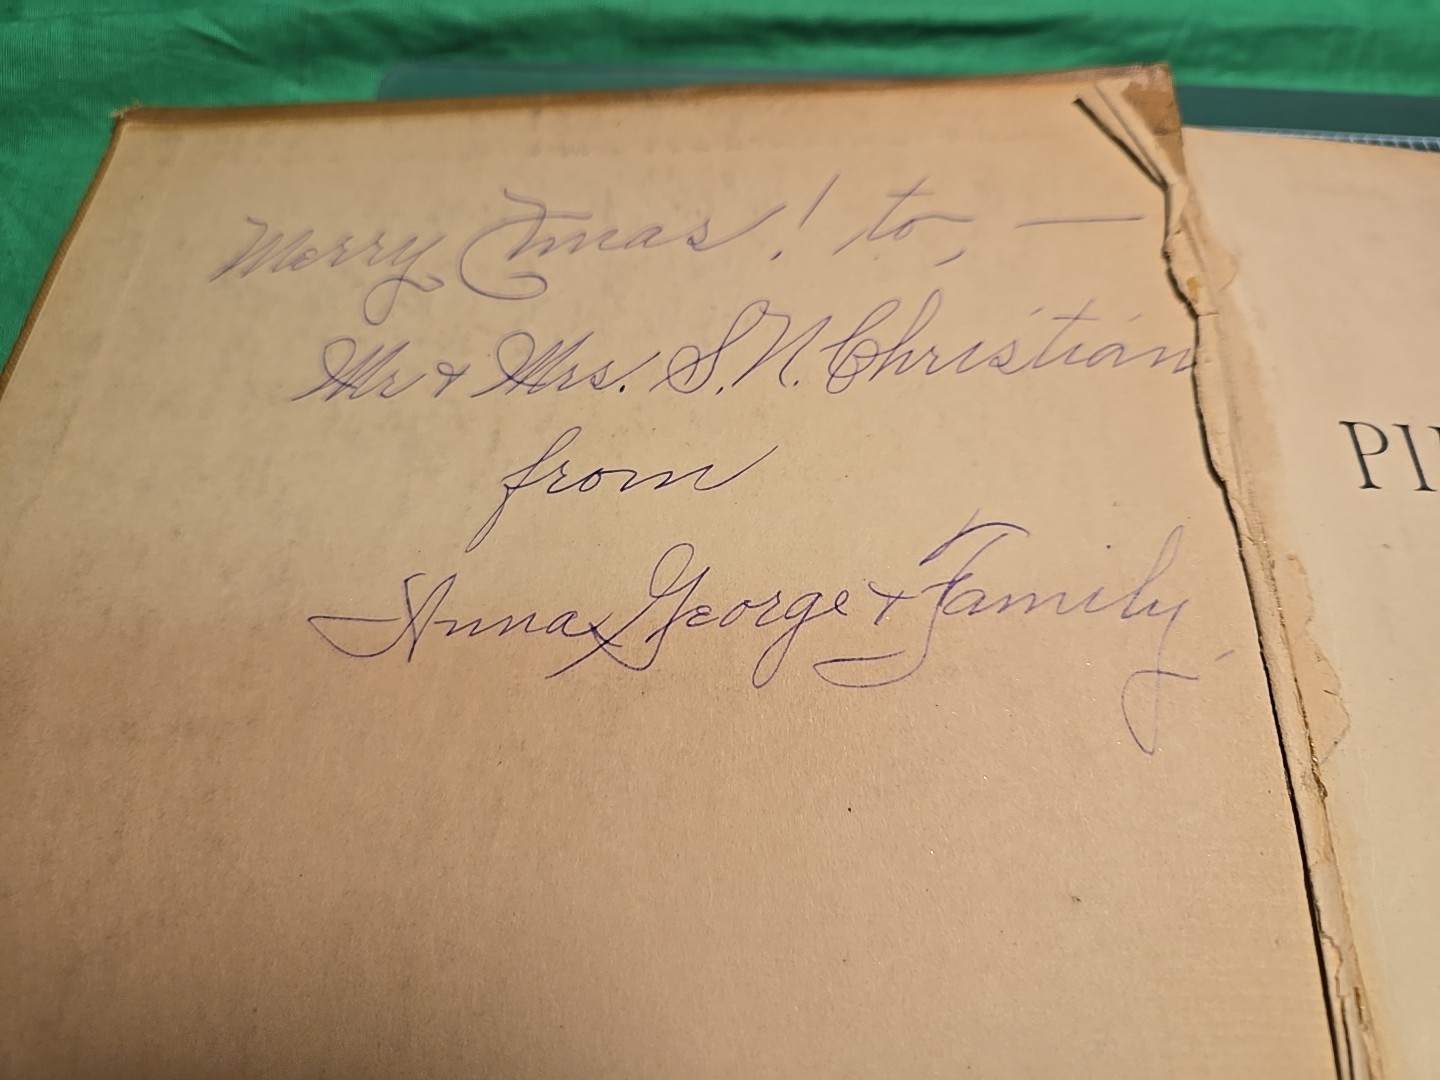 Merry Xmas! to, —
Mr & Mrs. S. N. Christian
from
Anna George & Family.
PI